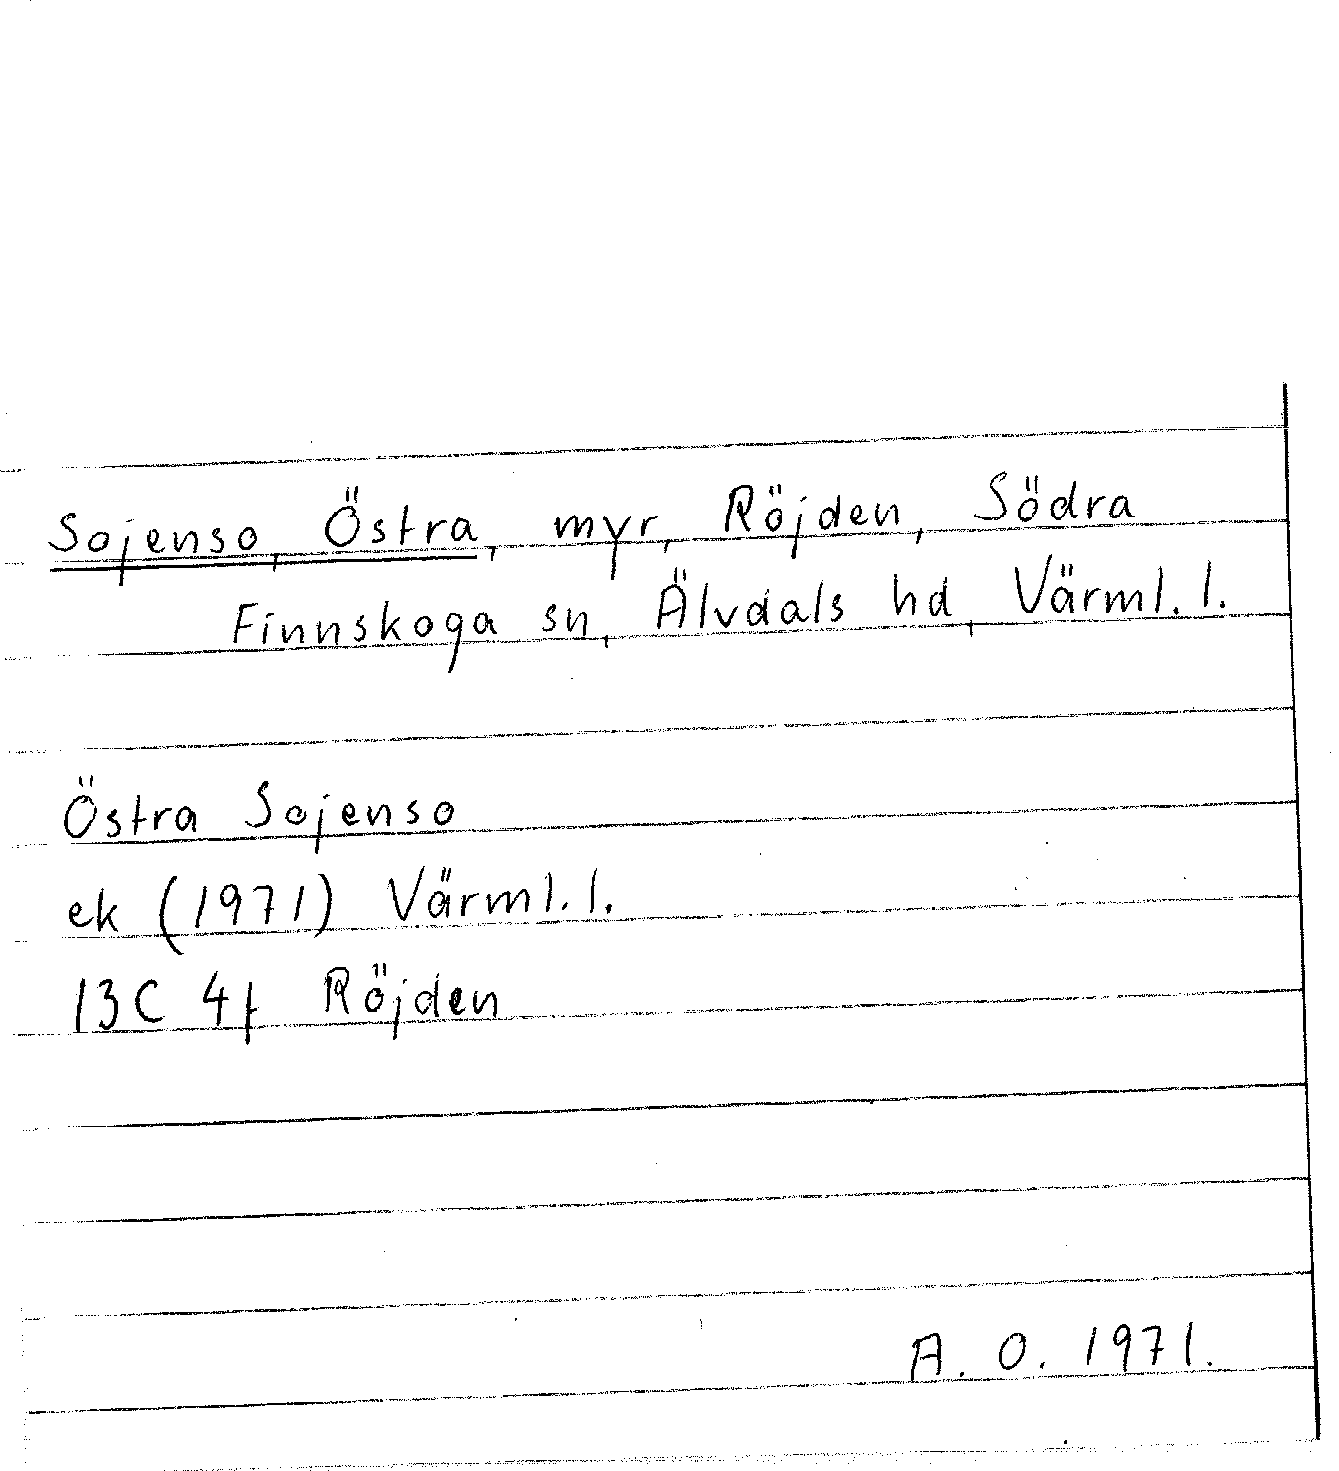 Sojenso, Östra, myr, Röjden, Södra
Finnskoga sn, Älvdals hd, Värml. l.
Östra Sojenso
ek (1971) Värml. l.
13C 4f Röjden
A. O. 1971.